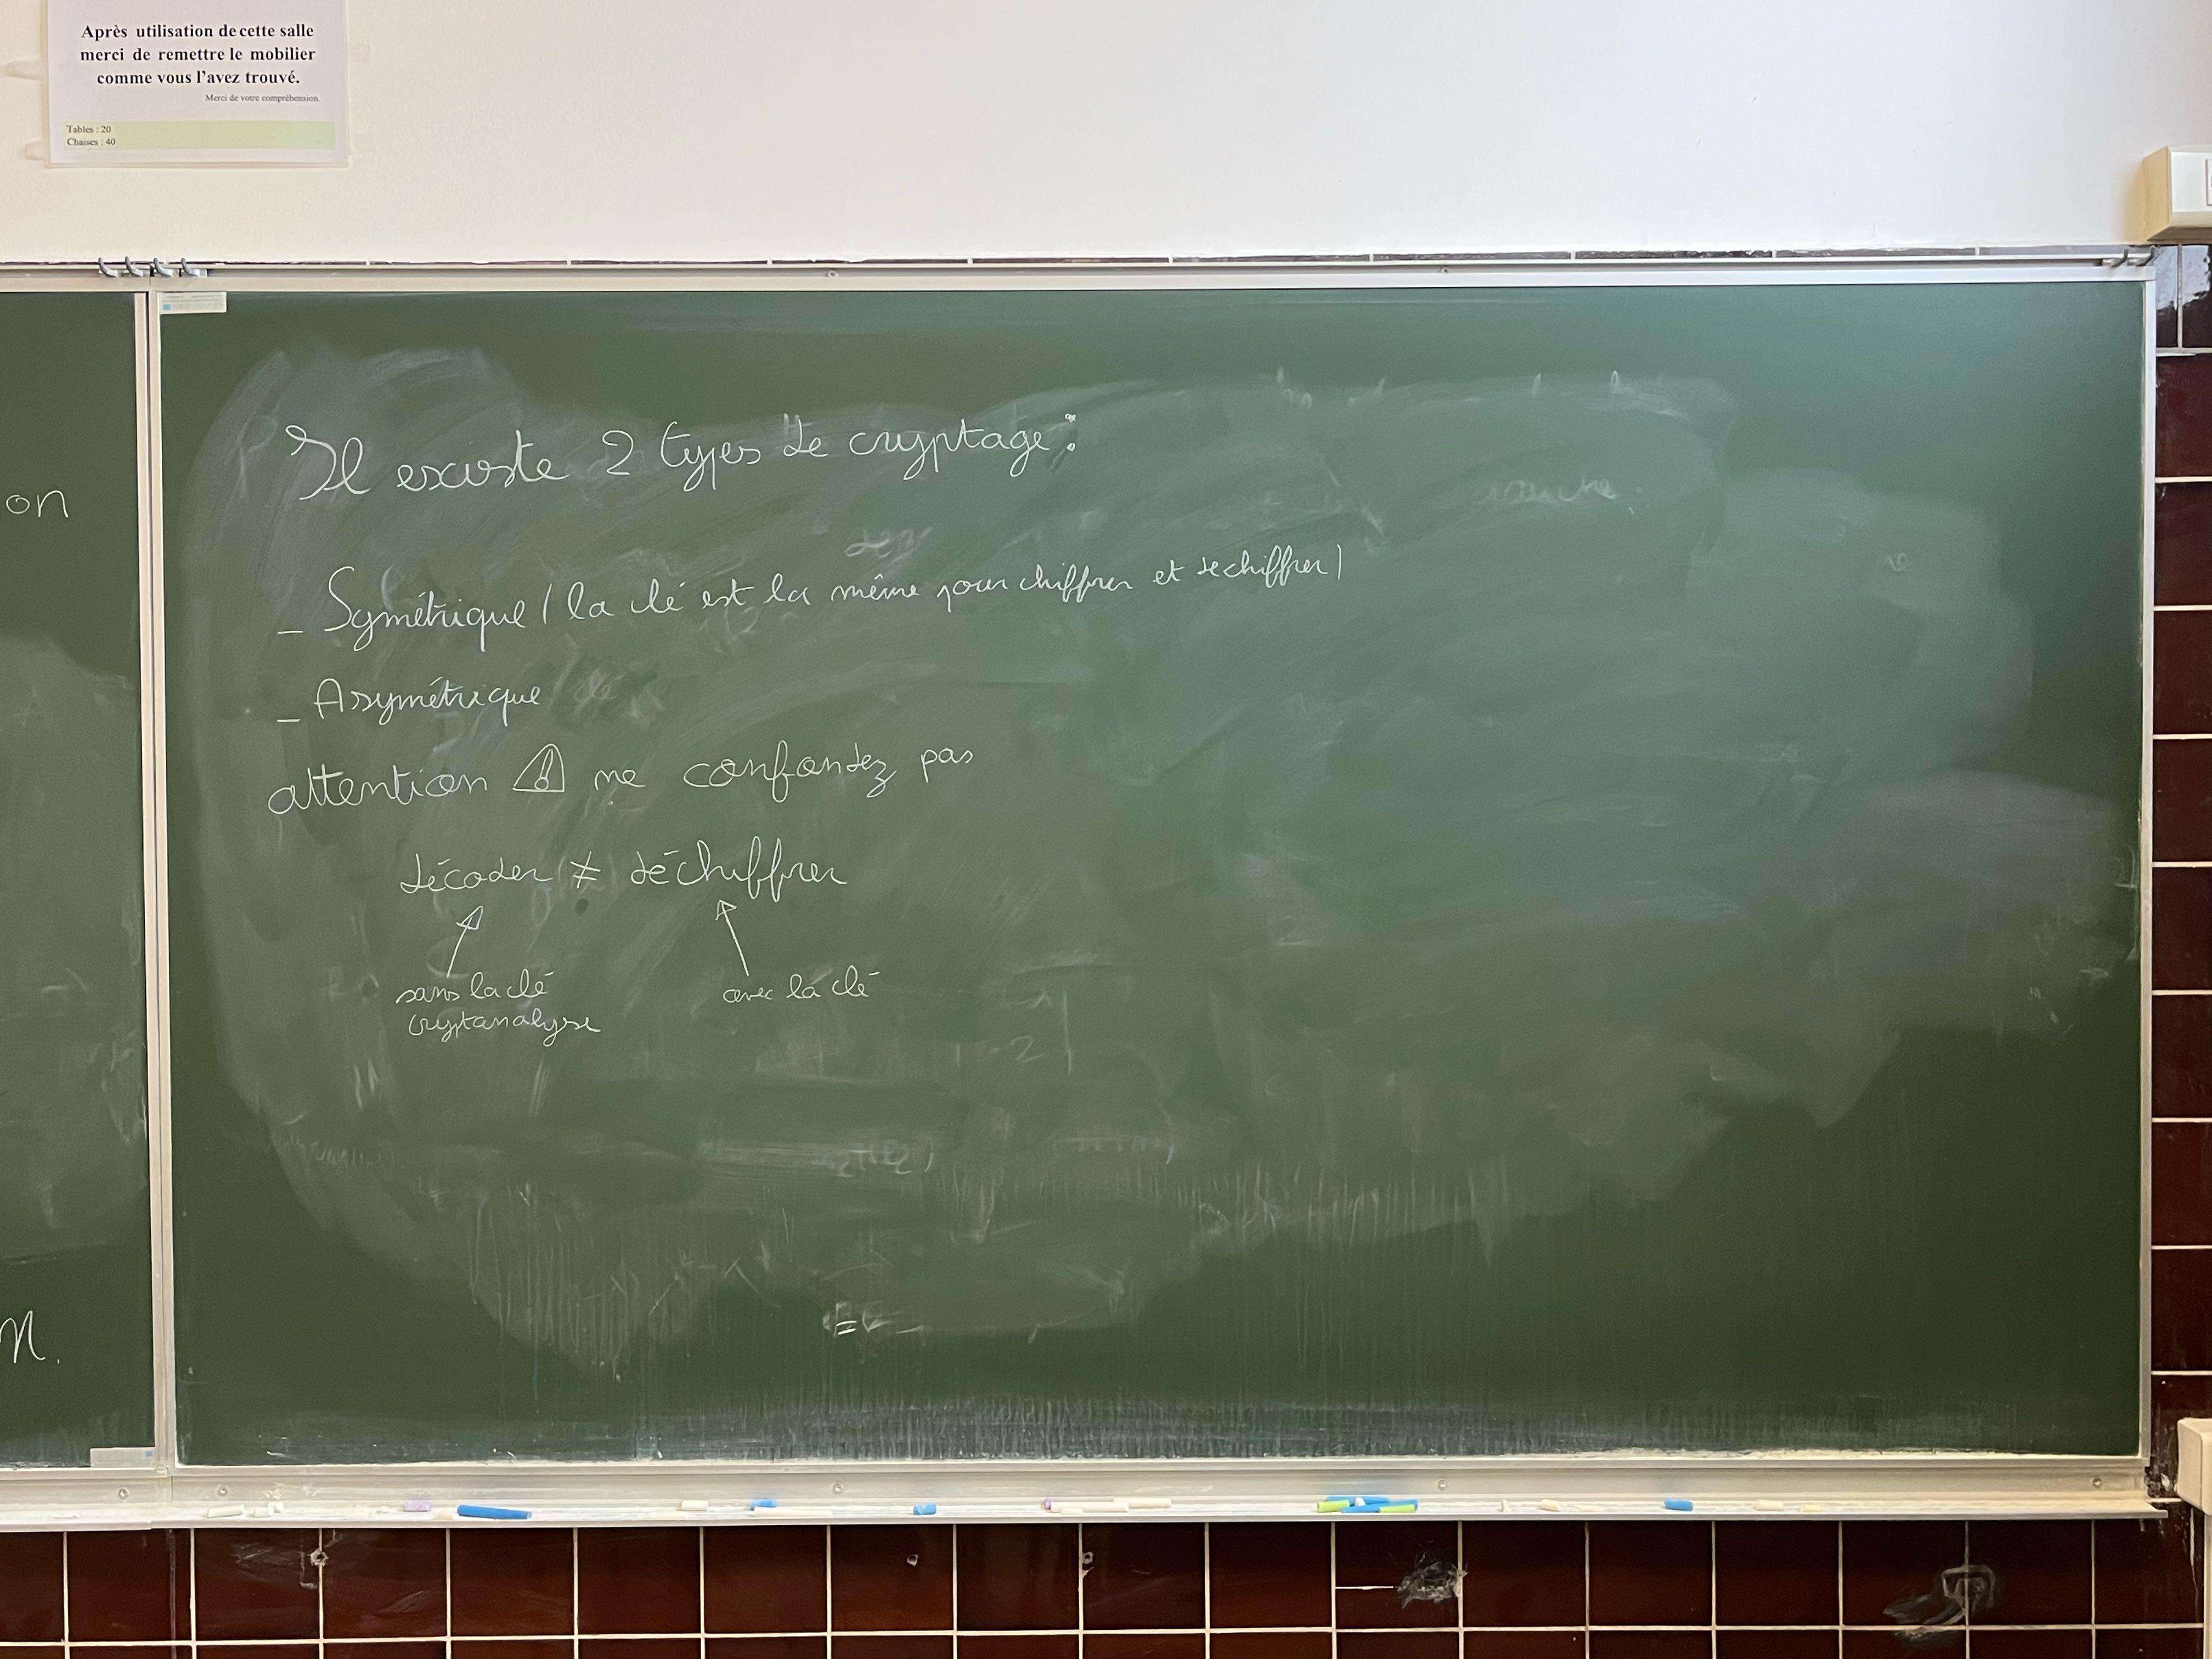 Après utilisation de cette salle
merci de remettre le mobilier
comme vous l'avez trouvé.
Merci de votre compréhension.
Tables : 20
Chaises : 40
on
n.
Il existe 2 types de cryptage :
_ Symétrique (la clé est la même pour chiffrer et dechiffrer)
_ Asymétrique
attention ⚠ ne confondez pas
décoder ≠ déchiffrer
sans la clé
cryptanalyse
avec la clé